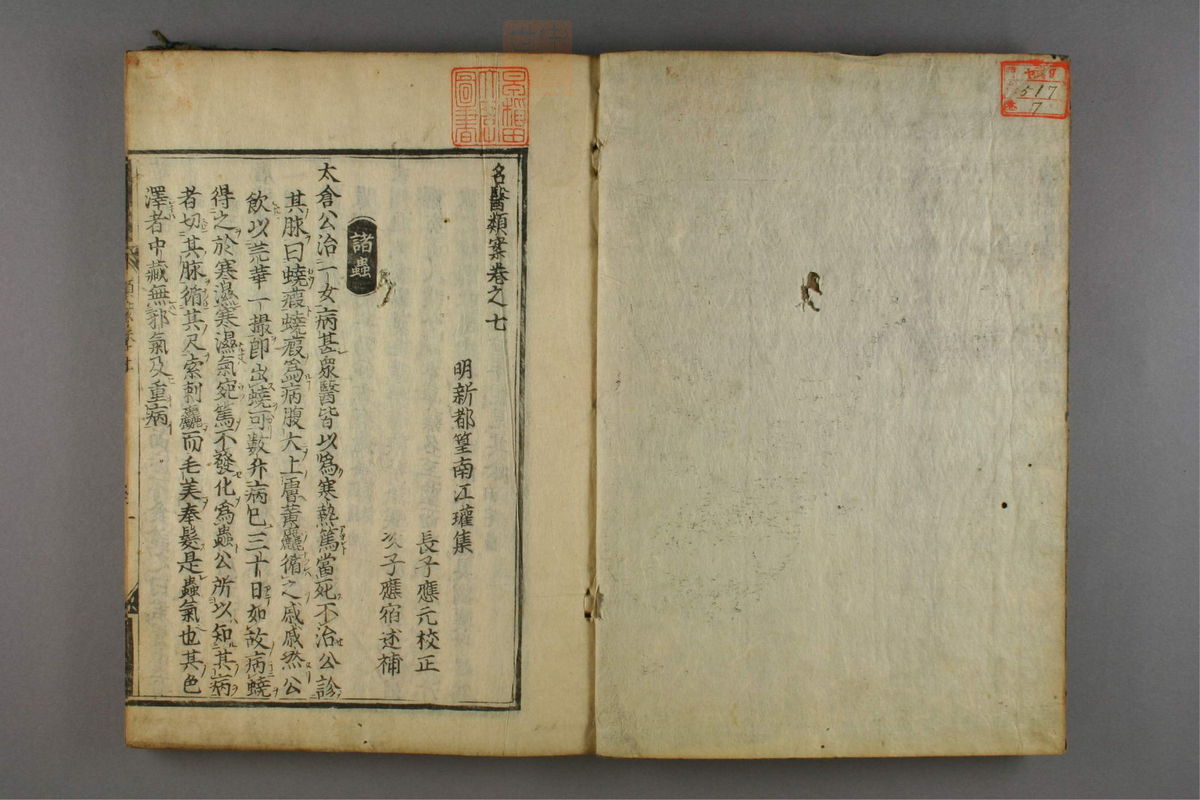 名醫類案卷之七
明新都篁南江瓘集
長子應元校正
次子應宿述補
諸蟲
太倉公治一女病甚衆醫皆以爲寒熱篤當死不治公診
其脉曰蟯瘕蟯瘕爲病腹大上膚黃麤循之戚戚然公
飲以芫華一撮卽出蟯可數升病已三十日如故病蟯
得之於寒濕寒濕氣宛篤不發化爲蟲公所以知其病
者切其脉循其尺索刺麤而毛美奉髮是蟲氣也其色
澤者中藏無邪氣及重病
517
7